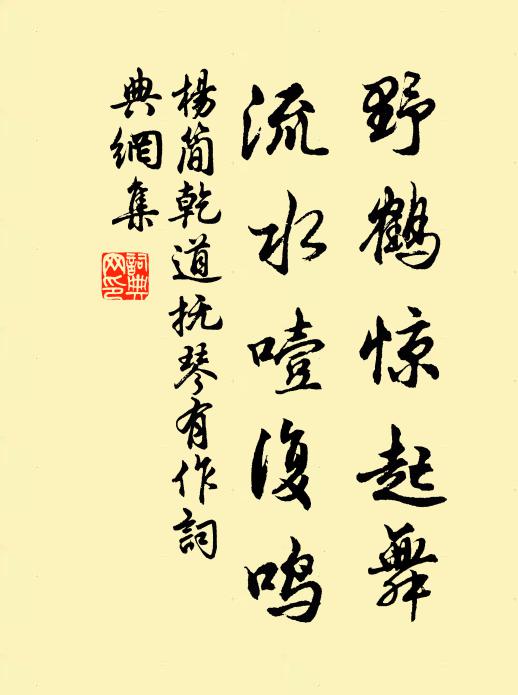 野鹤惊起舞
流水噎復鸣
楊简乾道抚琴有作詞
典網集
詞典网印